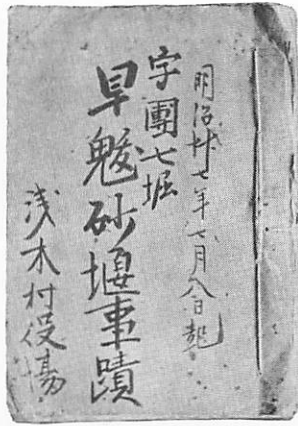 明治廿七年七月八日起
字團七堀
早魃砂堰事蹟
浅木村役場